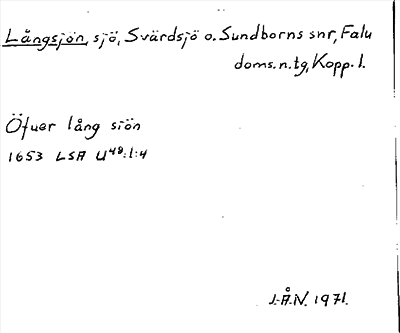 Långsjön, sjö, Svärdsjö o. Sundborns snr, Falu
doms.n.tg, Kopp. l.
Öfuer lång siön
1653 LSA U48:1:4
J-Å.N. 1971.